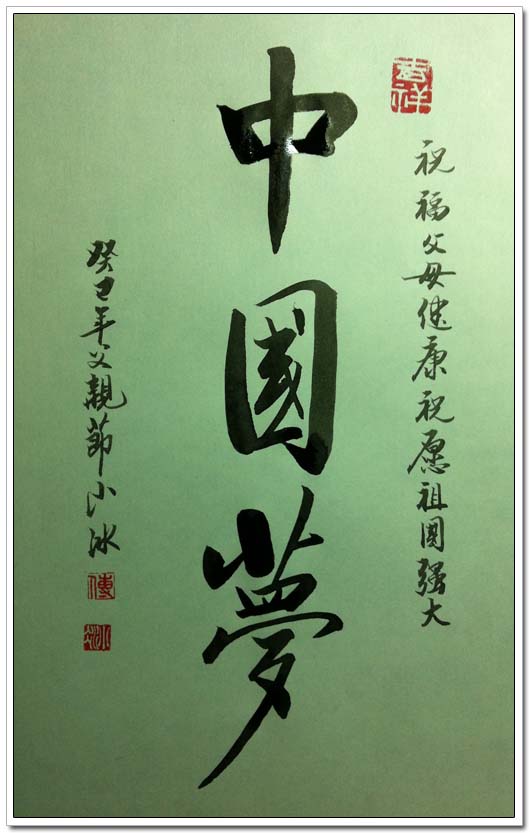 吉祥
祝福父母健康祝愿祖国强大
中國夢
癸巳年父親節小冰
傅
小冰